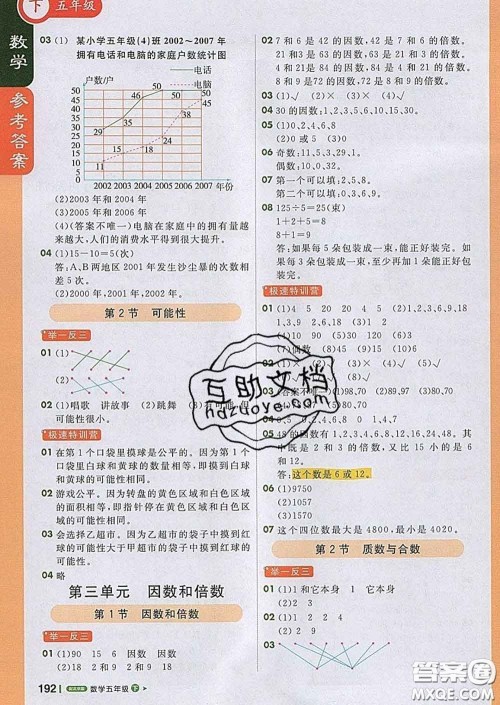 下
五年级
数学
参考答案
03 (1) 某小学五年级(4)班 2002~2007 年
拥有电话和电脑的家庭户数统计图
户数/户
电话
电脑
50
45
40
35
30
25
20
15
10
5
0
50
45
40
35
30
25
20
15
10
5
0
29
45
50
11
15
18
24
38
2002 2003 2004 2005 2006 2007 年份
(2)2003 年和 2004 年
(3)2005 年和 2006 年
(4)(答案不唯一)电脑在家庭中的拥有量越
来越大,人们的消费水平得到很大的提升。
04 (1)15-10=5(次)
答:A、B两地区 2001 年发生沙尘暴的次数
相差 5 次。
(2)2000 年,2001 年,2002 年。
第 2 节 可能性
举一反三
01 (1)
(2)
02 (1)唱歌 讲故事 (2)跳舞
可能性很小。
极速特训营
01 在第 1 个口袋里摸球是公平的。因为第 1 个
口袋里白球和黄球的数量相等,即摸到白球
和摸到黄球的可能性相同。
02 游戏公平。因为转盘中的黄色区域和白色区
域的面积相等,即指针指到黄色区域和白色
区域的可能性相同。
03 会选择乙超市。因为乙超市的袋子中摸到红
球的可能性大于甲超市的袋子中摸到红球的
可能性。
04 略
第三单元 因数和倍数
第 1 节 因数和倍数
举一反三
01 (1)90 15 6 因数 因数
(2)18 2 和 9 2 和 9 18
192 数学五年级 下
02 7 和 6 是 42 的因数,42 是 7 和 6 的倍数。
4 和 21 是 84 的因数,84 是 4 和 21 的倍数。
3 和 18 是 54 的因数,54 是 3 和 18 的倍数。
03 (1)√ (2)× (3)× (4)√
04 30 的因数:1、2、3、5、6、10、15、30。
05 (1)0、2、4、6、8
(2)0 或 5 (3)0
06 奇数:11、5、3、29、1。
偶数:10、36、32、0。
07 第一个可以填:2、5、8。
第二个可以填:0、3、6、9。
08 125÷5=25(束)
1+2+5=8
8÷3=2……2
答:如果每 5 朵包装成一束,能正好装完。如
果每 3 朵包装成一束,不能正好装完。
极速特训营
01 (1)4 5 20 20 4 5 (2)1、2、3、6、9、18
02 (1)× (2)× (3)× (4)√
04
05 48 的因数有 1、2、3、4、6、8、12、16、24、48。其
中既是 2 和 3 的倍数,又比 15 小的是 6
和 12。
答:这个数是 6 或 12。
06 (1)9750
(2)1038
(3)1570
07 这个四位数最大是 4800,最小是 4020。
第 2 节 质数与合数
举一反三
01 (1)1 和它本身 1 它本身
(2)2 3
02 1 2 2 4
03
互助文档
hdzuoye.com
答案圈
MXQE.COM